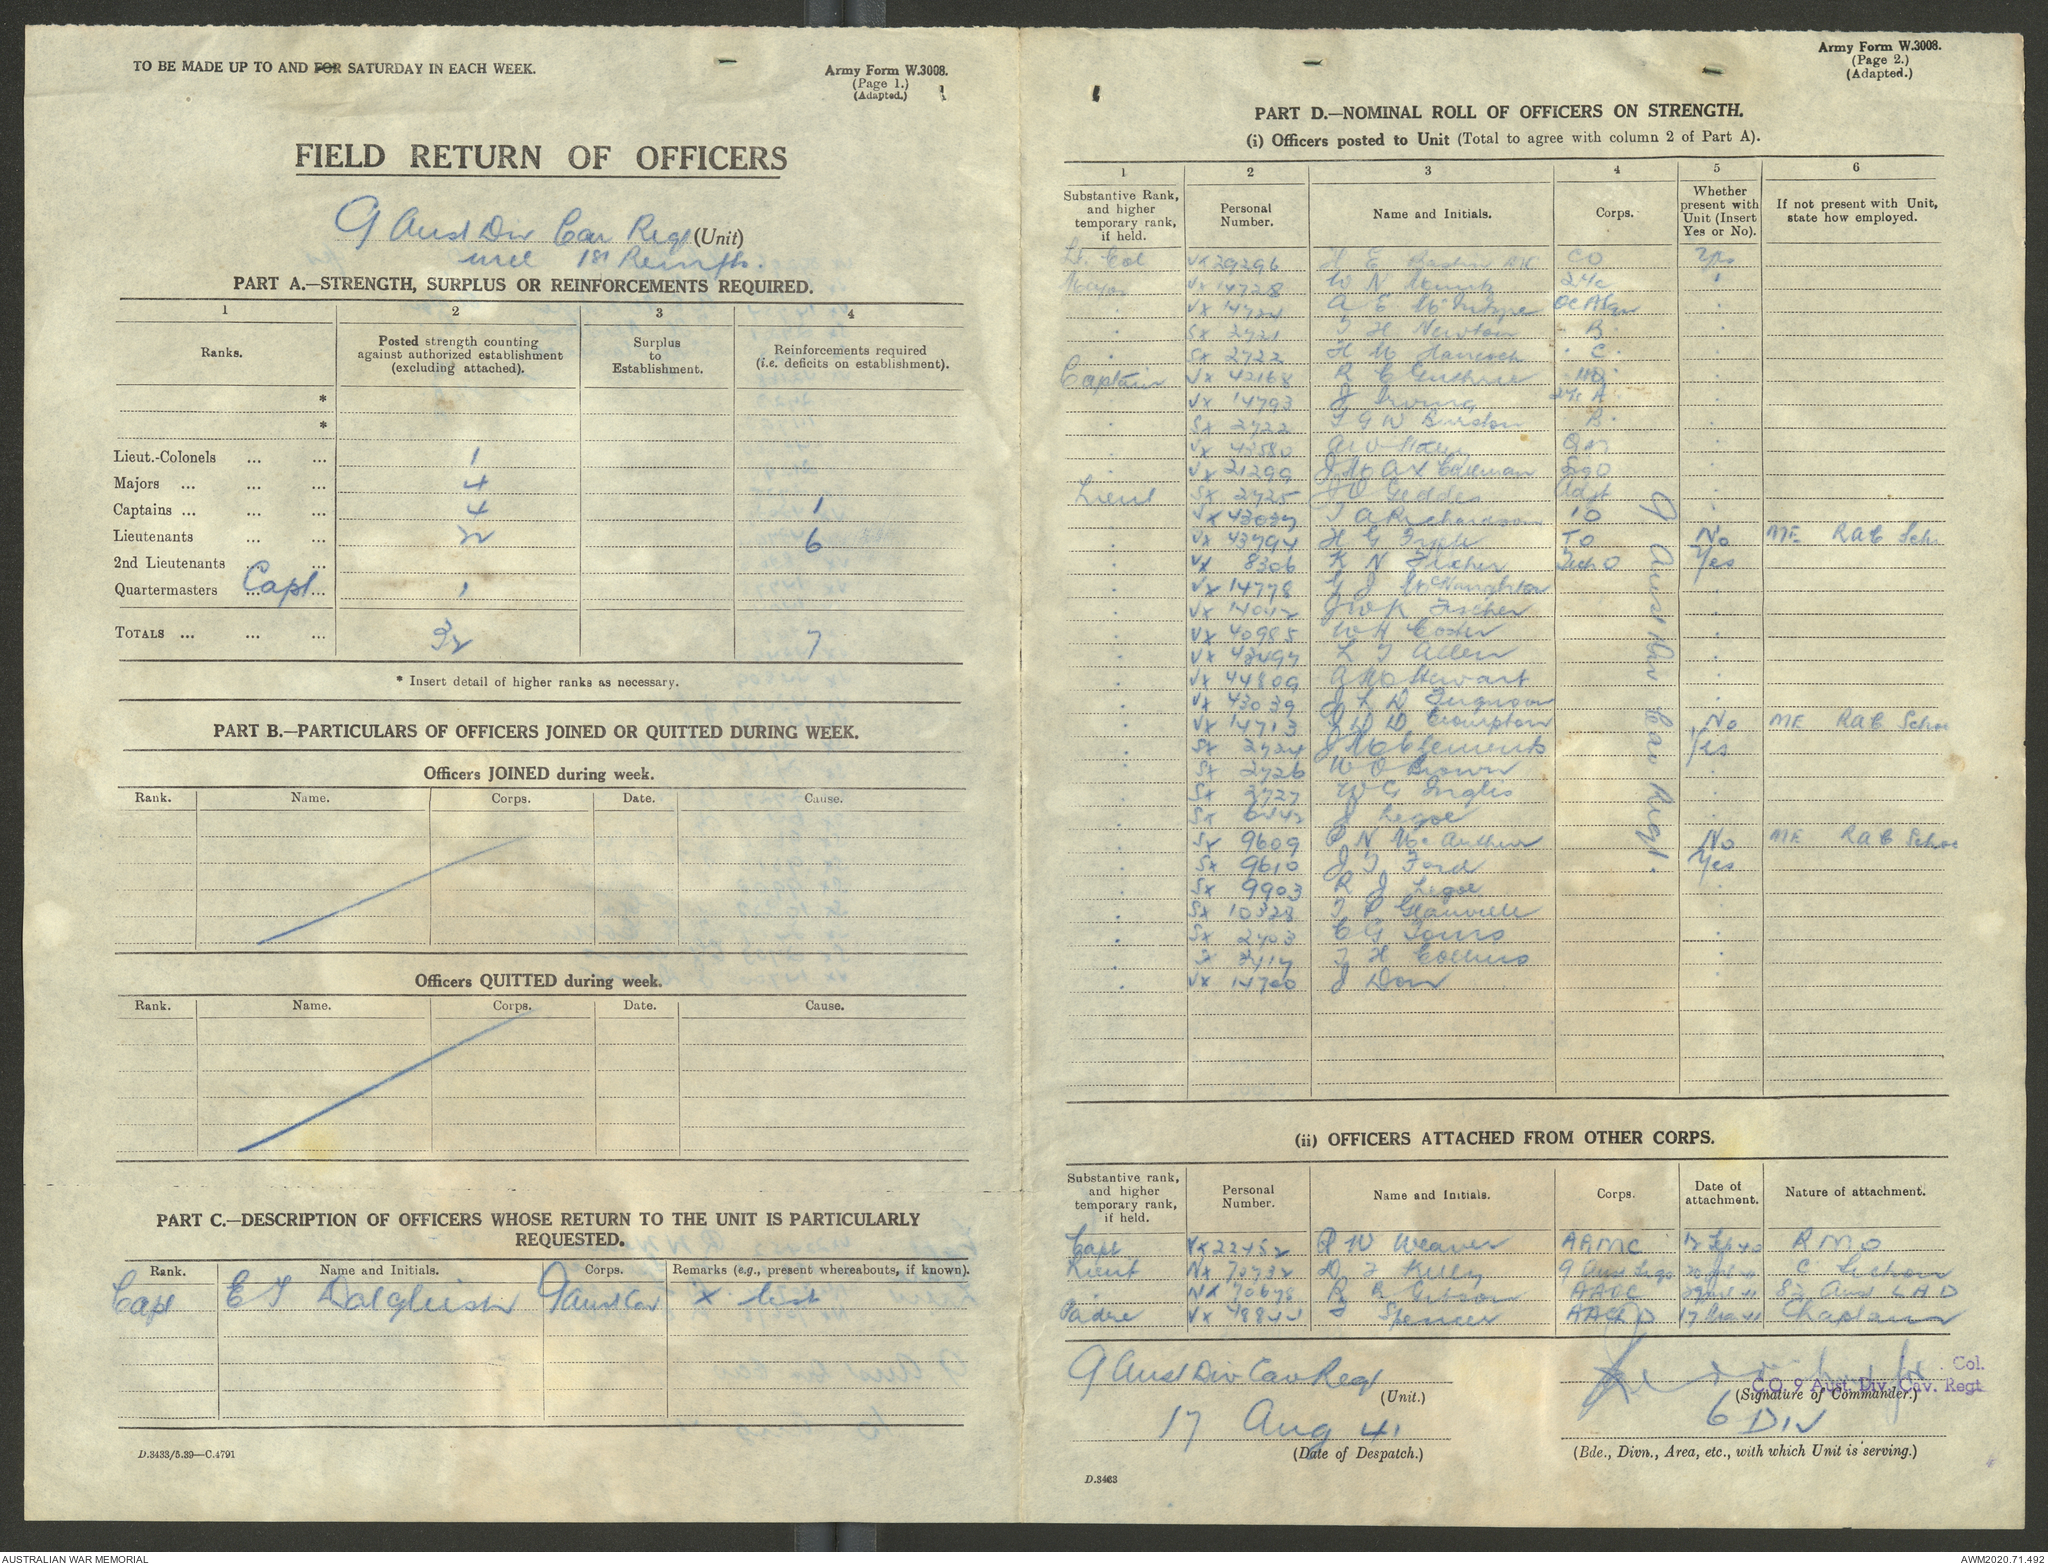 TO BE MADE UP TO AND FOR SATURDAY IN EACH WEEK.
Army Form W.3008.
(Page 1.)
(Adapted.)
FIELD RETURN OF OFFICERS
9 Aust Div Cav Regt (Unit)
incl 1st Reinfts.
PART A.—STRENGTH, SURPLUS OR REINFORCEMENTS REQUIRED.
1 2 3 4
Ranks. Posted strength counting against authorized establishment (excluding attached). Surplus to Establishment. Reinforcements required (i.e. deficits on establishment).
*
*
Lieut.-Colonels ... ... 1
Majors ... ... ... 4
Captains ... ... ... 4 1
Lieutenants ... ... 22 6
2nd Lieutenants ... ...
Quartermasters ... Capt ... 1
TOTALS ... ... ... 32 7
* Insert detail of higher ranks as necessary.
PART B.—PARTICULARS OF OFFICERS JOINED OR QUITTED DURING WEEK.
Officers JOINED during week.
Rank. Name. Corps. Date. Cause.
Officers QUITTED during week.
Rank. Name. Corps. Date. Cause.
PART C.—DESCRIPTION OF OFFICERS WHOSE RETURN TO THE UNIT IS PARTICULARLY REQUESTED.
Rank. Name and Initials. Corps. Remarks (e.g., present whereabouts, if known).
Capt E T Dalgleish 9 Aust Cav X list
D.3433/5.39—C.4791
Army Form W.3008.
(Page 2.)
(Adapted.)
PART D.—NOMINAL ROLL OF OFFICERS ON STRENGTH.
(i) Officers posted to Unit (Total to agree with column 2 of Part A).
1 2 3 4 5 6
Substantive Rank, and higher temporary rank, if held. Personal Number. Name and Initials. Corps. Whether present with Unit (Insert Yes or No). If not present with Unit, state how employed.
Lt. Col VX 29296 H E CO Yes
Major VX 14728 W N 2i/c
VX 14724 A E McIntyre OC A Sqn
SX 2721 T H Newton B
SX 2722 H M Hancock C
Captain VX 42168 R C Guthrie HQ
VX 14793 J Irving 2i/c A
SX 2722 B
VX 43580 QM
VX 21299 Coleman SigO
Lieut SX 2725 Geddes Adjt
VX 43037 T A Richardson IO
VX 43794 H G TO No ME RAC Sch
VX 8306 K N Filcher Tech O Yes
VX 14778 G J McNaughton
VX 14042 J W K Fischer
VX 40985 W H Coster
VX 43497 L T Allen
VX 44809 Stewart
VX 43039 J L D Ferguson
VX 14713 D Crompton No ME RAC School
SX 2724 J M Clements Yes
SX 2726 W O Brown
SX 2727 W G Inglis
SX J Legoe
SX 9609 P N McArthur No ME RAC School
SX 9610 J T Ford Yes
SX 9903 R J Legoe
SX 10328 T P Glanville
SX 2403 C G
SX 3417 T H Collins
VX 14700 J Dow
9 Aust Div Cav Regt.
(ii) OFFICERS ATTACHED FROM OTHER CORPS.
Substantive rank, and higher temporary rank, if held. Personal Number. Name and Initials. Corps. Date of attachment. Nature of attachment.
Capt VX 22452 P W Weaver AAMC 12 Sep 40 RMO
Lieut NX 70732 D J Kelly 9 Aust Sigs
NX 70678 R B Gibson AAOC 82 Aust LAD
Padre VX 48844 J Spencer AACD 17 Chaplain
9 Aust Div Cav Regt
(Unit.)
Col.
CO 9 Aust. Div. Cav. Regt
(Signature of Commander.)
17 Aug 41
(Date of Despatch.)
6 DIV
(Bde., Divn., Area, etc., with which Unit is serving.)
D.3463
AUSTRALIAN WAR MEMORIAL
AWM2020.71.492